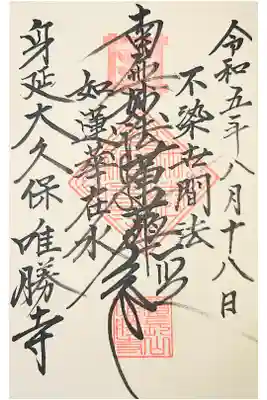 令和五年八月十八日
不染世間法
南無妙法蓮華経
如蓮華在水
身延大久保唯勝寺